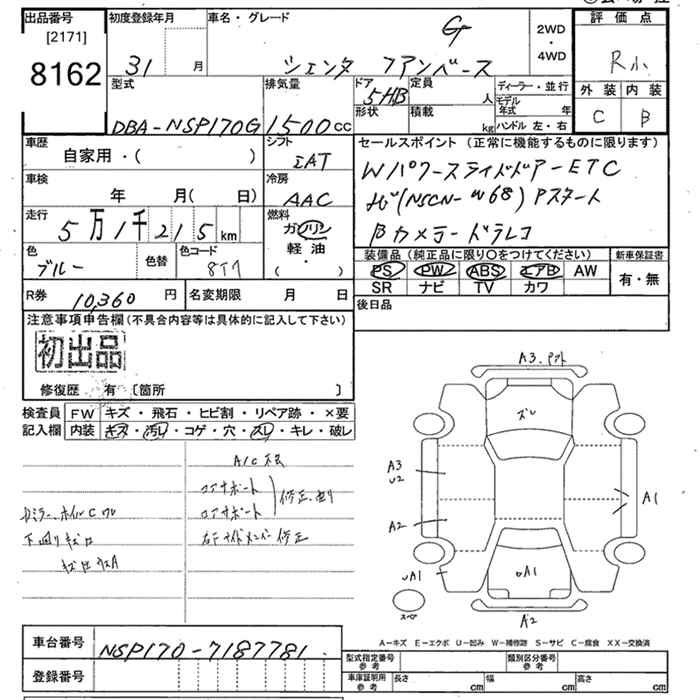 出品番号 [2171] 8162
初度登録年月 31 月
車名・グレード シエンタ ファンベース G
2WD ・ 4WD
評価点 R
外装 C 内装 B
型式 DBA-NSP170G
排気量 1500cc
ドア 形状 5HB
定員 人
積載 kg
ディーラー・並行
モデル年式 年
ハンドル 左・右
車歴 自家用・( )
シフト IAT
車検 年 月( 日)
冷房 AAC
走行 5万1千215km
燃料 ガソリン 軽油 ( ・ )
色 ブルー
色替
色コード 8T7
セールスポイント (正常に機能するものに限ります)
Wパワースライドドアー ETC
ナビ(NSCN-W68) Pスタート
Bカメラー ドラレコ
装備品 (純正品に限り○をつけてください)
新車保証書 有・無
PS PW ABS エアB AW
SR ナビ TV カワ
R券 10,360 円
名変期限 月 日
後日品
注意事項申告欄(不具合内容等は具体的に記入して下さい)
初出品
修復歴 有 〔箇所 〕
検査員 記入欄
FW キズ・飛石・ヒビ割・リペア跡・×要
内装 キズ・汚レ・コゲ・穴・スレ・キレ・破レ
コアサポート 修正
コアサポート
修正
下廻り
A3
ズレ
A3
U2
A2
A1
UA1
A1
スペア
A2
A-キズ E-エクボ U-凹み W-補修跡 S-サビ C-腐食 XX-交換済
車台番号 NSP170-7187781
登録番号
型式指定番号 参考
類別区分番号 参考
車庫証明用 参考 長さ cm 幅 cm 高さ cm